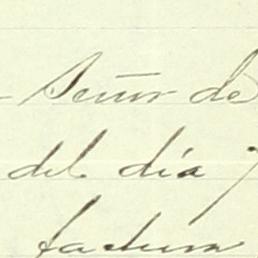 Señor de
del día 7
factura